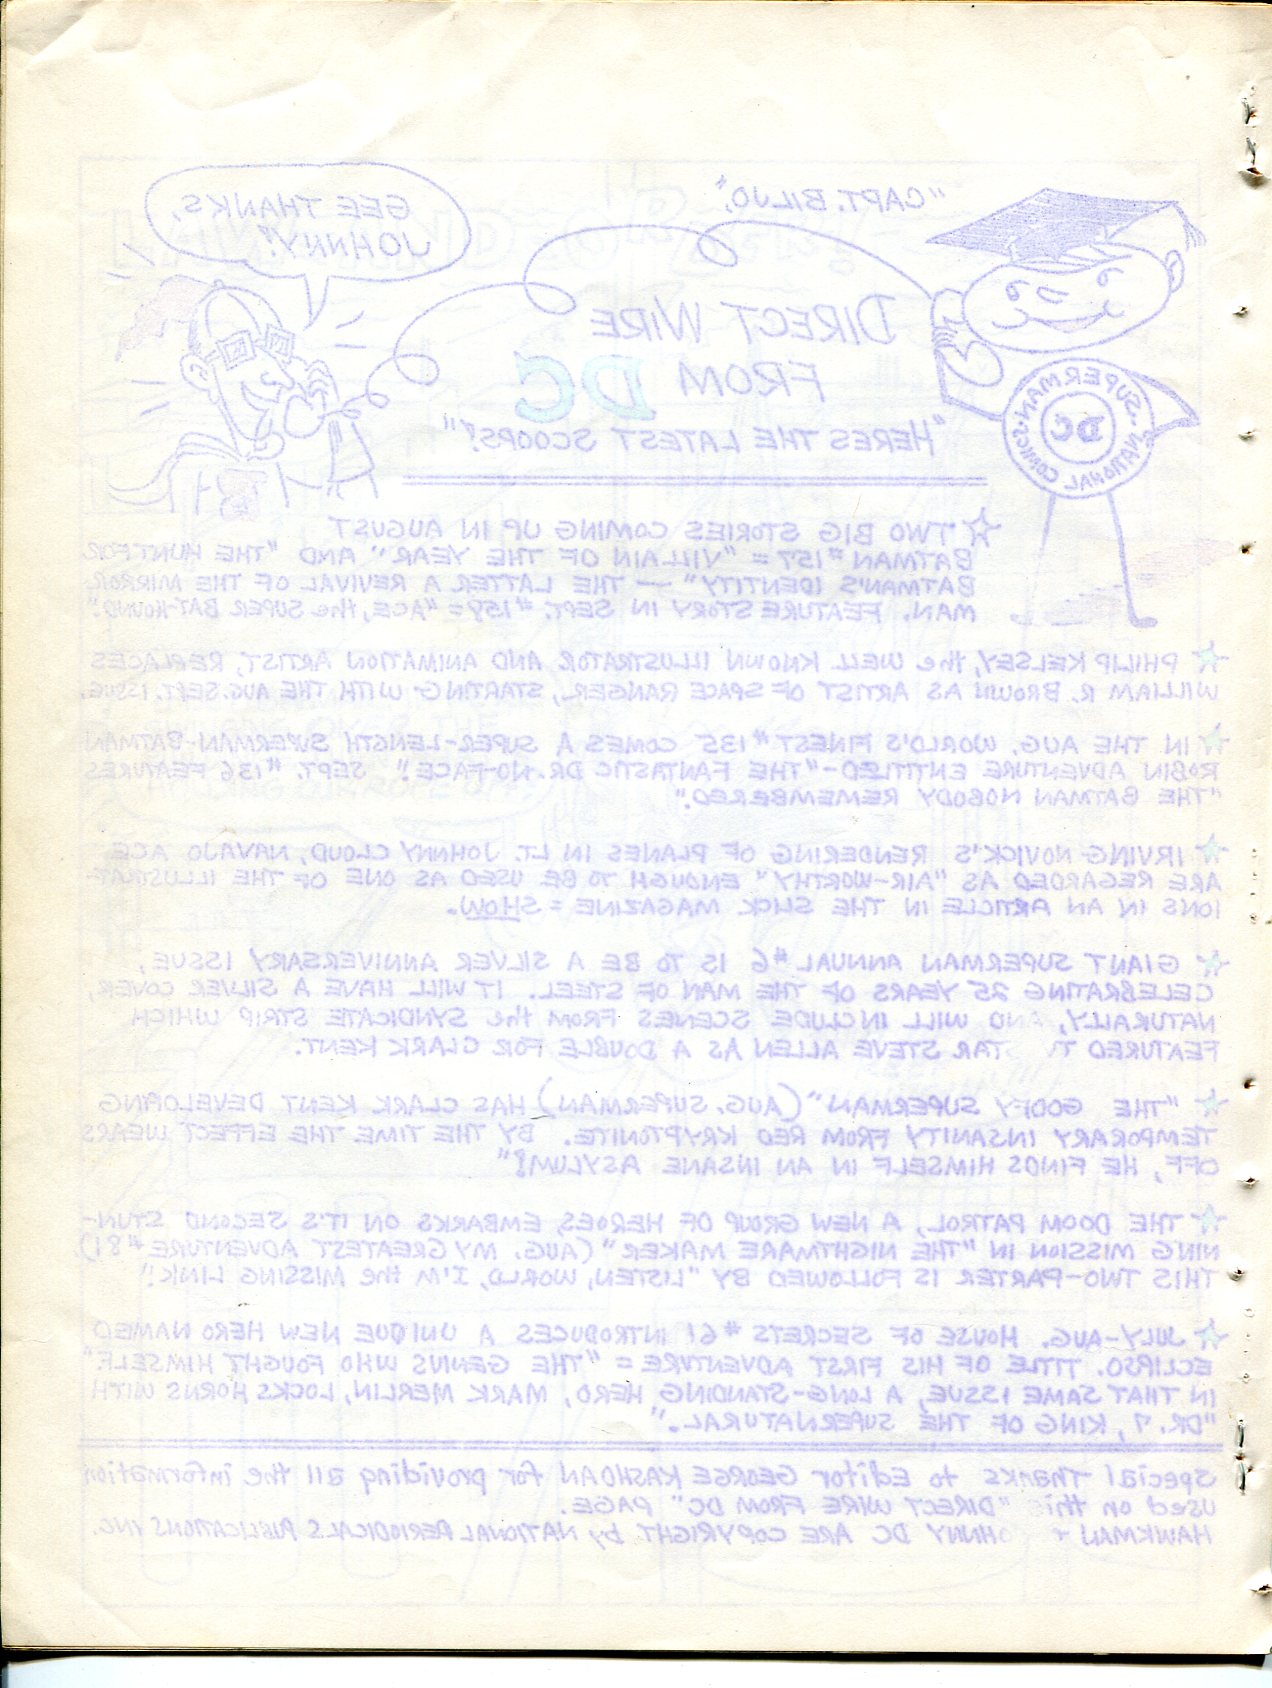 "CAPT. BILJO,"
GEE THANKS,
JOHNNY!
DIRECT WIRE
FROM DC
"HERES THE LATEST SCOOPS!"
SUPERMAN · NATIONAL COMICS ·
DC
TWO BIG STORIES COMING UP IN AUGUST
BATMAN #157 = "VILLAIN OF THE YEAR" AND "THE HUNT FOR
BATMAN'S IDENTITY" — THE LATTER A REVIVAL OF THE MIRROR
MAN. FEATURE STORY IN SEPT. #158 = "ACE, the SUPER BAT-HOUND."
PHILIP KELSEY, the WELL KNOWN ILLUSTRATOR AND ANIMATION ARTIST, REPLACES
WILLIAM R. BROWN AS ARTIST OF SPACE RANGER, STARTING WITH THE AUG. SEPT. ISSUE.
IN THE AUG. WORLD'S FINEST #135 COMES A SUPER-LENGTH SUPERMAN-BATMAN
ROBIN ADVENTURE ENTITLED-"THE FANTASTIC DR. NO-FACE". SEPT. #136 FEATURES
"THE BATMAN NOBODY REMEMBERED."
IRVING NOVICK'S RENDERING OF PLANES IN LT. JOHNNY CLOUD, NAVAJO ACE
ARE REGARDED AS "AIR-WORTHY" ENOUGH TO BE USED AS ONE OF THE ILLUSTRAT-
IONS IN AN ARTICLE IN THE SLICK MAGAZINE = SHOW.
GIANT SUPERMAN ANNUAL #6 IS TO BE A SILVER ANNIVERSARY ISSUE,
CELEBRATING 25 YEARS OF THE MAN OF STEEL. IT WILL HAVE A SILVER COVER,
NATURALLY, AND WILL INCLUDE SCENES FROM the SYNDICATE STRIP WHICH
FEATURED TV STAR STEVE ALLEN AS A DOUBLE FOR CLARK KENT.
"THE GOOFY SUPERMAN" (AUG. SUPERMAN) HAS CLARK KENT DEVELOPING
TEMPORARY INSANITY FROM RED KRYPTONITE. BY THE TIME THE EFFECT WEARS
OFF, HE FINDS HIMSELF IN AN INSANE ASYLUM!"
THE DOOM PATROL, A NEW GROUP OF HEROES, EMBARKS ON IT'S SECOND STUN-
NING MISSION IN "THE NIGHTMARE MAKER" (AUG. MY GREATEST ADVENTURE #81)
THIS TWO-PARTER IS FOLLOWED BY "LISTEN, WORLD, I'M the MISSING LINK!"
JULY-AUG. HOUSE OF SECRETS #61 INTRODUCES A UNIQUE NEW HERO NAMED
ECLIPSO. TITLE OF HIS FIRST ADVENTURE = "THE GENIUS WHO FOUGHT HIMSELF."
IN THAT SAME ISSUE, A LONG-STANDING HERO, MARK MERLIN, LOCKS HORNS WITH
"DR. 7, KING OF THE SUPERNATURAL."
Special Thanks to Editor GEORGE KASHDAN for providing all the information
used on this "DIRECT WIRE FROM DC" PAGE.
HAWKMAN + JOHNNY DC ARE COPYRIGHT by NATIONAL PERIODICALS PUBLICATIONS INC.